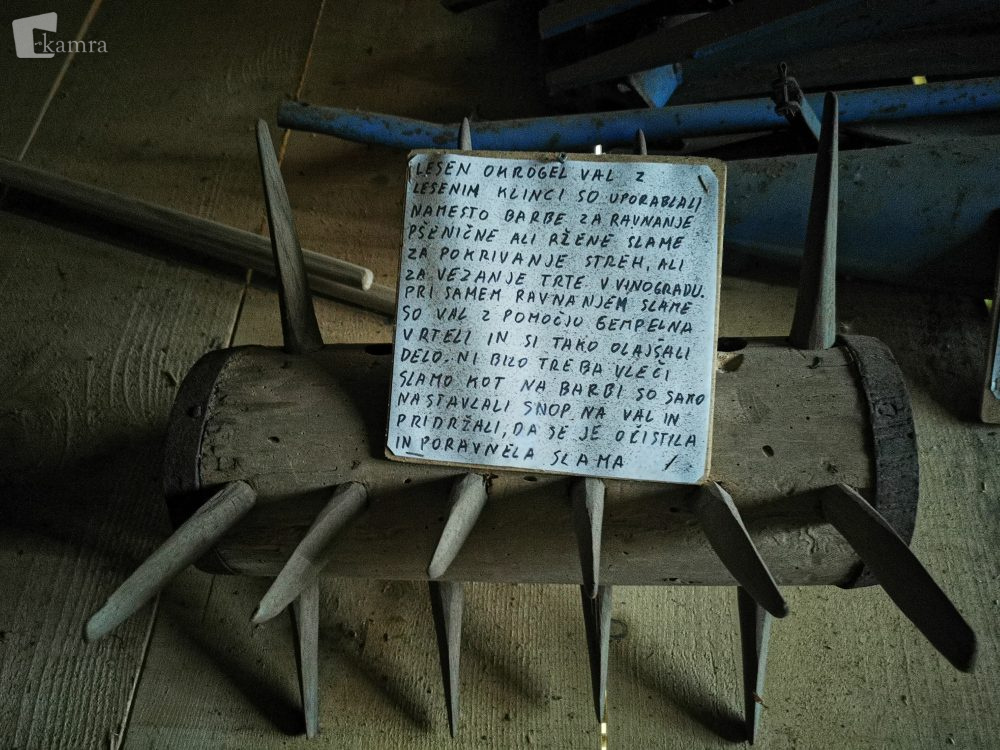 kamra
LESEN OKROGEL VAL Z
LESENIM KLINCI SO UPORABLALI
NAMESTO BARBE ZA RAVNANJE
PŠENIČNE ALI RŽENE SLAME
ZA POKRIVANJE STREH, ALI
ZA VEZANJE TRTE V VINOGRADU.
PRI SAMEM RAVNANJEM SLAME
SO VAL Z POMOČJU GEMPELNA
VRTELI IN SI TAKO OLAJŠALI
DELO. NI BILO TREBA VLEČI
SLAMO KOT NA BARBI SO SAMO
NASTAVLALI SNOP NA VAL IN
PRIDRŽALI, DA SE JE OČISTILA
IN PORAVNELA SLAMA